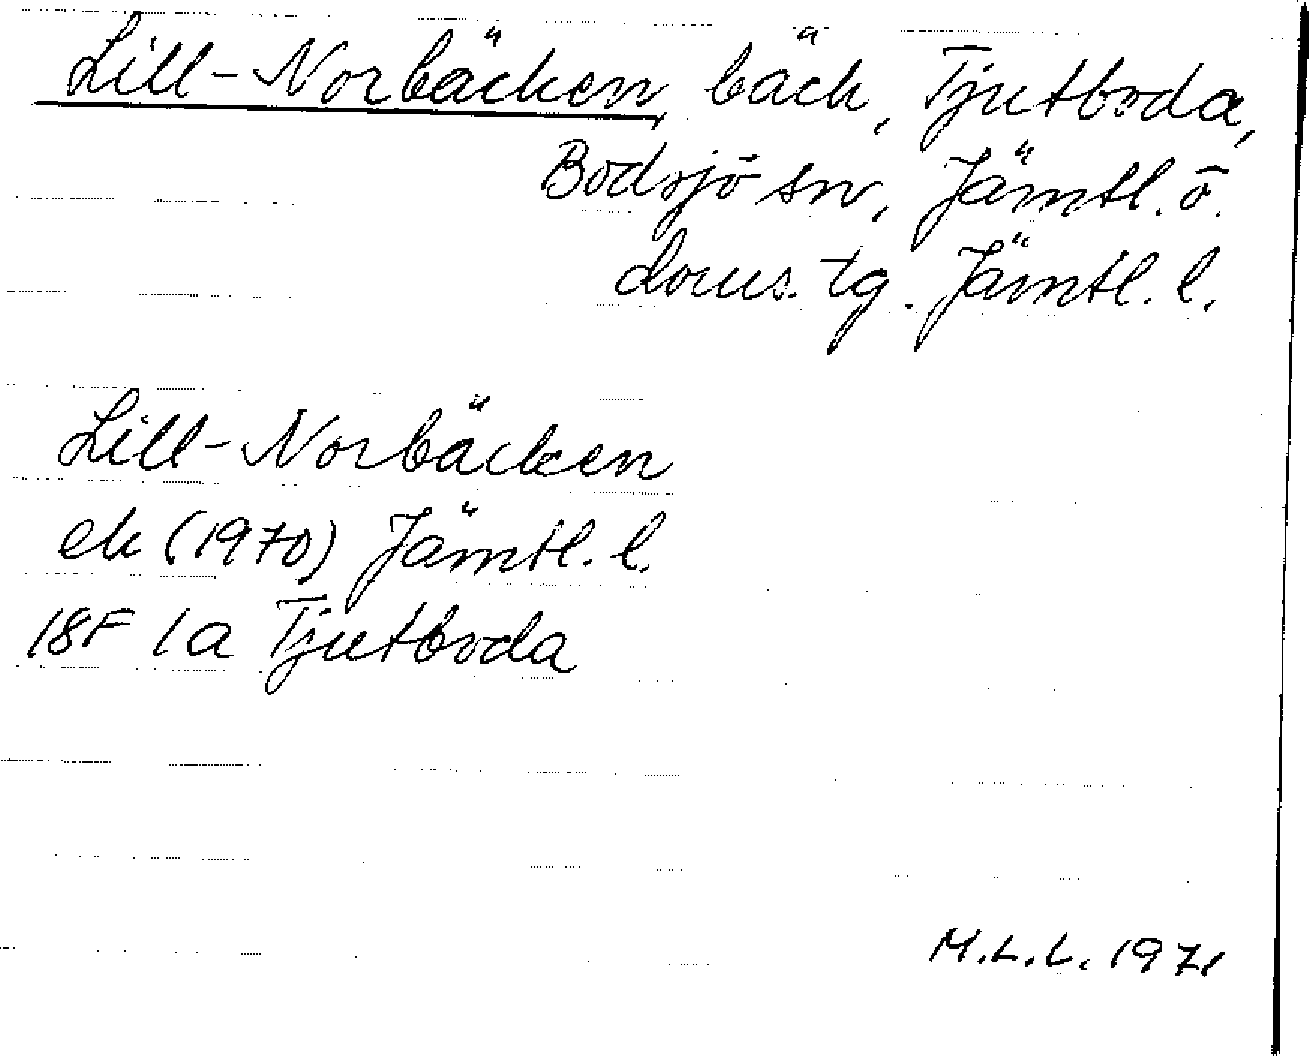 Lill-Norbäcken, bäck, Tjutboda,
Bodsjö sn, Jämtl. ö.
doms. tg. Jämtl. l.
Lill-Norbäcken
ek (1970) Jämtl. l.
18F 1a Tjutboda
M.L.L. 1971